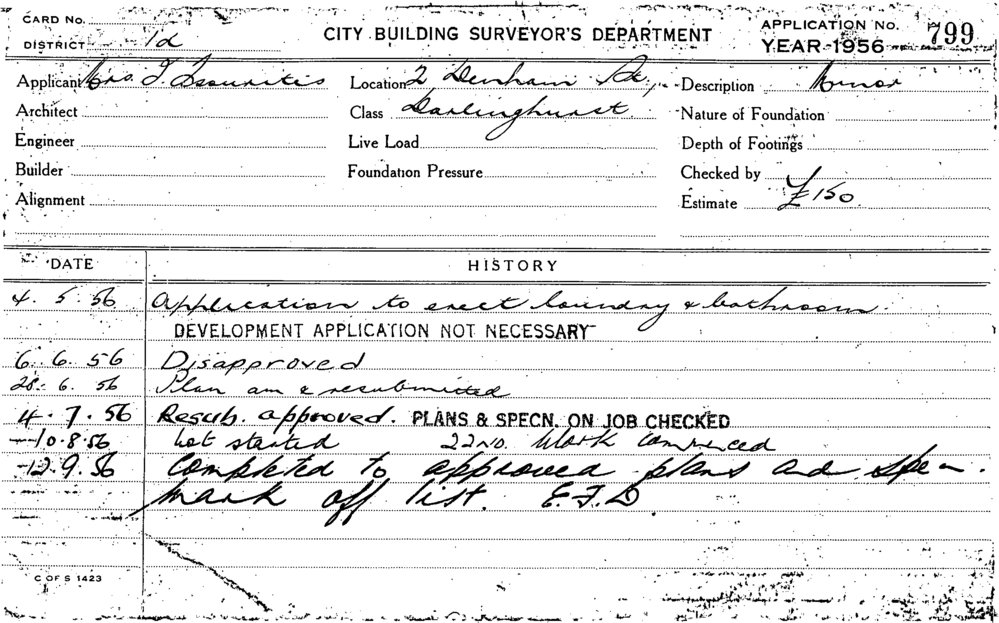 CARD No.
DISTRICT 12
CITY BUILDING SURVEYOR'S DEPARTMENT
APPLICATION No. 799
YEAR-1956
Applicant Mrs. I
Location 2 Denham St.,
Description Minor
Architect
Class Darlinghurst.
Nature of Foundation
Engineer
Live Load
Depth of Footings
Builder
Foundation Pressure
Checked by
Alignment
Estimate £150
DATE HISTORY
4. 5. 56 Application to erect laundry & bathroom.
DEVELOPMENT APPLICATION NOT NECESSARY
6. 6. 56 Disapproved
28. 6. 56 Plan am & resubmitted
4. 7. 56 Resub. approved. PLANS & SPECN. ON JOB CHECKED
10.8.56 Not started 22ND. Work commenced
12.9.56 Completed to approved plans and specn.
Mark off list. E.F.D
C OF S 1423